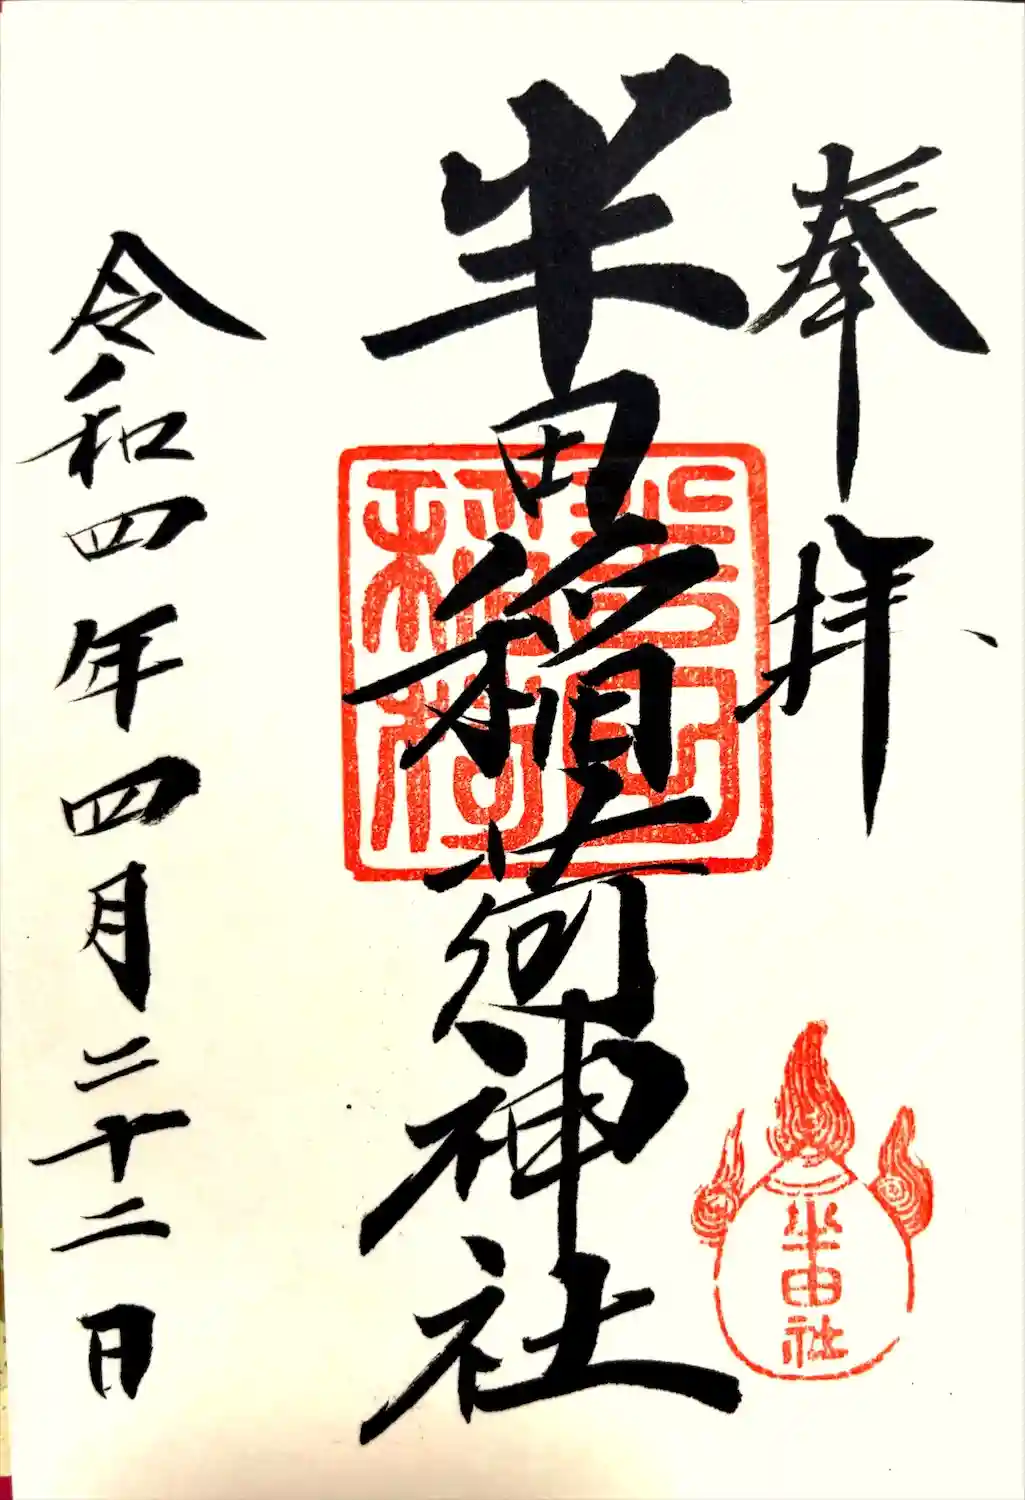 奉拝
半田稲荷神社
半田稲荷
半田社
令和四年四月二十二日